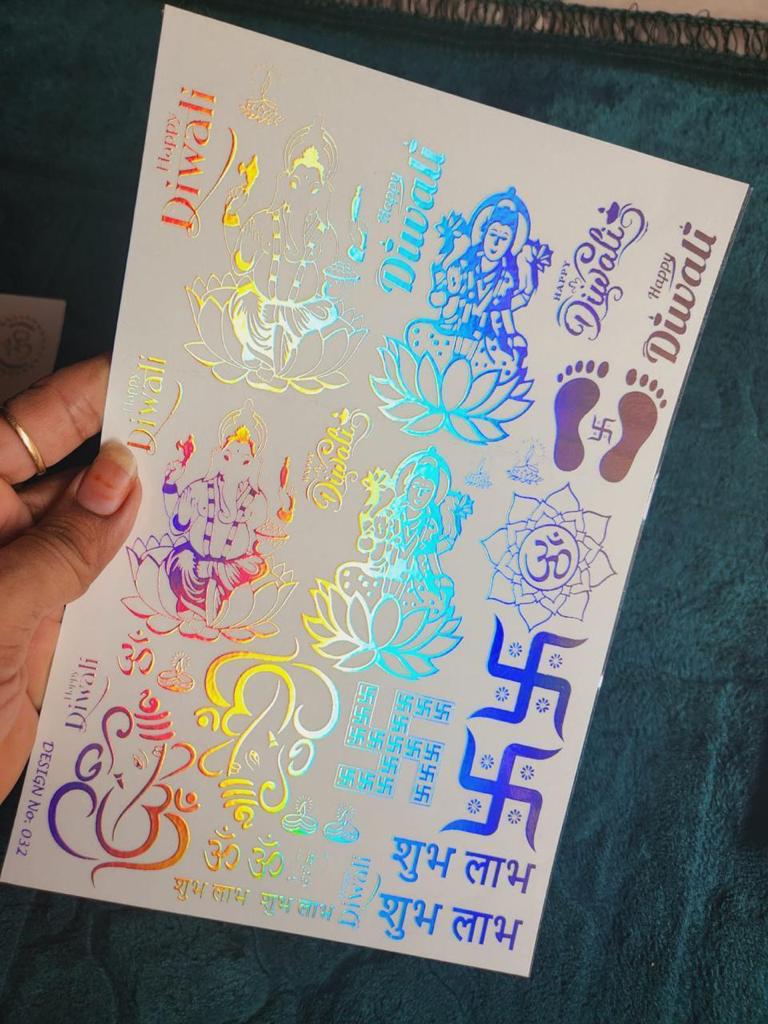 Happy
Diwali
Happy
Diwali
HAPPY
Diwali
Happy
Diwali
Happy
Diwali
HAPPY
Diwali
ॐ
ॐ
Happy
Diwali
DESIGN No. 032
ॐ
ॐ
Happy
Diwali
शुभ लाभ
शुभ लाभ
शुभ लाभ
शुभ लाभ